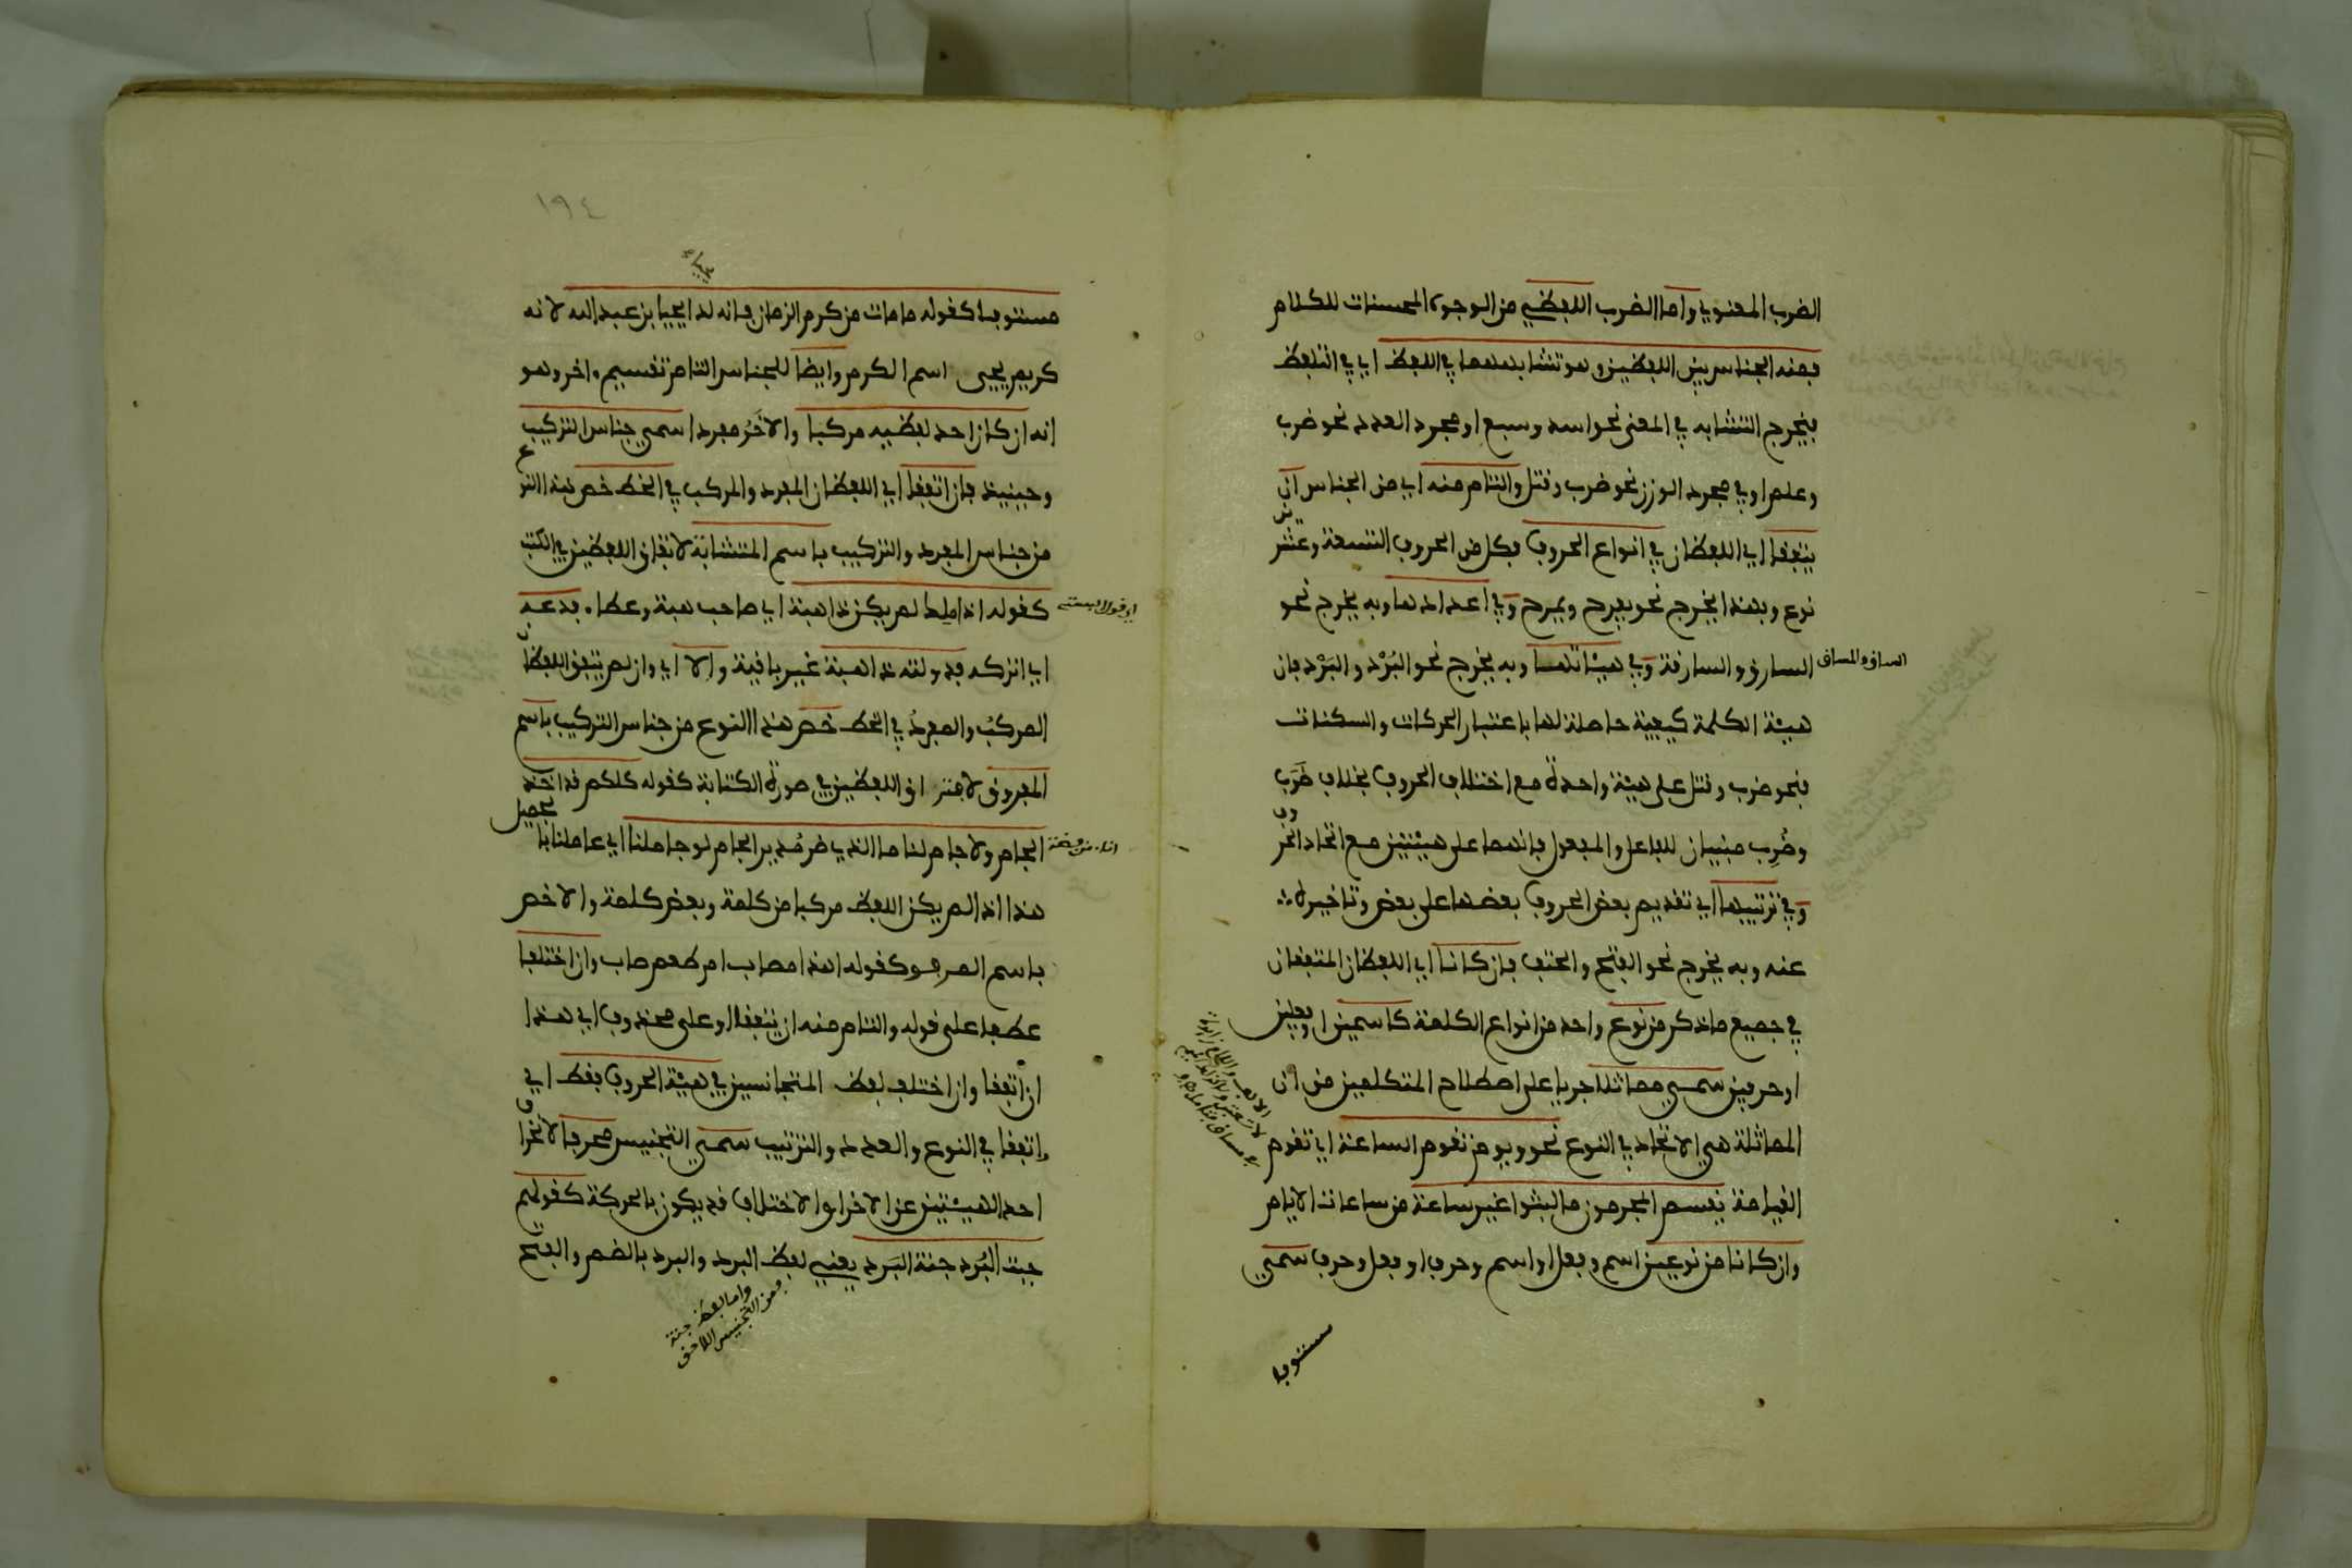 الضرب المعنوي واما الضرب اللفظي من الوجوه المحسنات للكلام
فمنه الجناس بين اللفظين وهو تشابههما في اللفظ اي في التلفظ
فيخرج التشابه في المعنى نحو اسد وسبع او مجرد العدد نحو ضرب
وعلم او في مجرد الوزن نحو ضرب وقتل والتام منه اي من الجناس ان
يتفقا اي اللفظان في انواع الحروف فكل من الحروف التسعة وعشرين
نوع وبهذا يخرج نحو يفرح ويمرح وفي اعدادها وبه يخرج نحو
الساق والمساق
السارق والسارقة وفي هيئاتها وبه يخرج نحو البُرْد والبَرْد فان
هيئة الكلمة كيفية حاصلة لها باعتبار الحركات والسكنات
فنحو ضرب وقتل على هيئة واحدة مع اختلاف الحروف بخلاف ضَرَب
وضُرِب مبنيان للفاعل والمفعول فانهما على هيئتين مع اتحاد الحروف
وفي ترتيبها اي تقديم بعض الحروف بعضها على بعض وتاخيره
عنه وبه يخرج نحو الفتح والحتف فان كانا اي اللفظان المتفقان
في جميع ما ذكر من نوع واحد من انواع الكلمة كاسمين او فعلين
او حرفين سمي مماثلا جريا على اصطلاح المتكلمين من ان
المماثلة هي الاتحاد في النوع نحو ويوم تقوم الساعة اي تقوم
القيامة يقسم المجرمون ما لبثوا غير ساعة من ساعات الايام
وان كانا من نوعين اسم وفعل او اسم وحرف او فعل وحرف سمي
مستوفا
١٩٤
مستوفا كقوله ما مات من كرم الزمان فانه لدا يحيا بن عبد الله لانه
كريم يحيى اسم الكرم وايضا للجناس التام تقسيم اخر وهو
انه ان كان احد لفظيه مركبا والاخَر مفردا سمي جناس التركيب
وحينئذ فان اتفقا اي اللفظان المفرد والمركب في الخط خص هذا النوع
من جناس المفرد والتركيب باسم المتشابة لاتفاق اللفظين في الكتب
كقوله اذا ملِك لم يكن ذا هبة اي صاحب هبة وعطا فدعه
اي اتركه فدولته ذاهبة غير باقية والا اي وان لم يتفق اللفظان
المركبُ والمفردُ في الخط خص هذا النوع من جناس التركيب باسم
المفروق لافتراق اللفظين في صورة الكتابة كقوله كلكم قد اخذ
الجام ولا جام لنا ما الذي ضر مُدير الجام لو جاملنا اي عاملنا بالجميل
هذا اذا لم يكن اللفظ مركبا من كلمة وبعض كلمة والا خص
باسم المرفو كقوله اهذا مصاب ام طعم صاب وان اختلفا
عطفا على قوله والتام منه ان يتفقا او على محذوف اي هذا
ان اتفقا وان اختلف لفظ المتجانسين في هيئة الحروف فقط اي
واتفقا في النوع والعدد والترتيب سمي التجنيس محرفا لانحراف
احد الهيئتين عن الاخرا والاختلاف قد يكون بالحركة كقولهم
جبة البُرد جنة البَرد يعني لفظ البرد والبرد بالضم والفتح
واما لفظ جنة
فمن التجنيس اللاحق